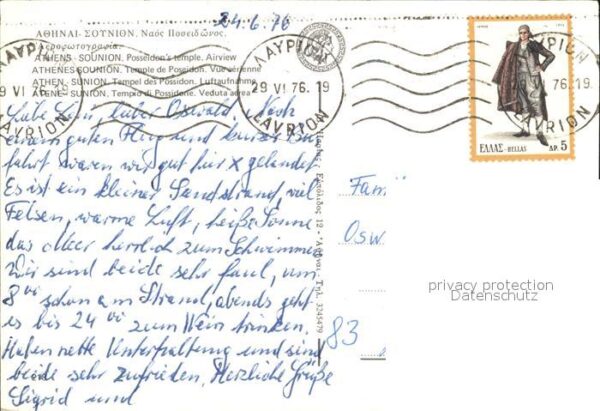 24.6.76
ΑΘΗΝΑΙ - ΣΟΥΝΙΟΝ. Ναός Ποσειδῶνος.
Ἀεροφωτογραφία
ATHENS - SOUNION. Posseidon's temple. Airview
ATHENES SOUNION. Temple de Poseidon. Vue aérienne
ATHEN - SUNION. Tempel des Possidon. Luftaufnahme
ATENE - SUNION. Tempio di Possidone. Veduta aerea
ΛΑΥΡΙΟΝ
29 VI 76
LAVRION
ΛΑΥΡΙΟΝ
29 VI 76. 19
LAVRION
ΛΑΥΡΙΟΝ
76.19
LAVRION
ΕΛΛΑΣ - HELLAS ΔΡ. 5
Liebe , lieber Oswald. Nach
einem guten Flug und kurzer Bus
fahrt waren wir gut hier x gelandet
Es ist ein kleiner Sandstrand, viel
Felsen, warme Luft, heiße Sonne
das Meer herrlich zum Schwimmen
Wir sind beide sehr faul, um
8 00 schon am Strand, abends geht
es bis 24 00 zum Wein trinken.
Haben nette Unterhaltung und sind
beide sehr zufrieden. Herzliche Grüße
Sigrid und
Εὐπόλιδος 12 - Ἀθῆναι - Τηλ. 3245479
Fami
Osw
83
privacy protection
Datenschutz